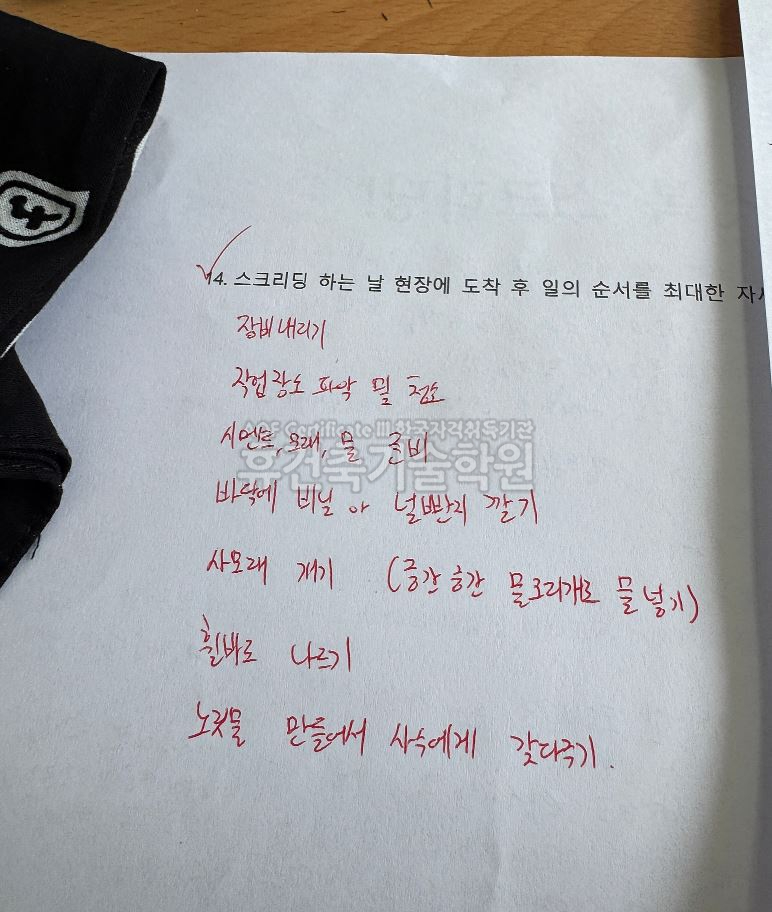 14. 스크리딩 하는 날 현장에 도착 후 일의 순서를 최대한
장비 내리기
작업장소 파악 및 청소
AQF Certificate III 한국자격취득기관
시멘트, 모래, 물 준비
휴건축기술학원
바닥에 비닐 or 널빤지 깔기
사모래 개기 (중간중간 물조리개로 물 넣기)
휠바로 나르기
노룻물 만들어서 사수에게 갖다주기.